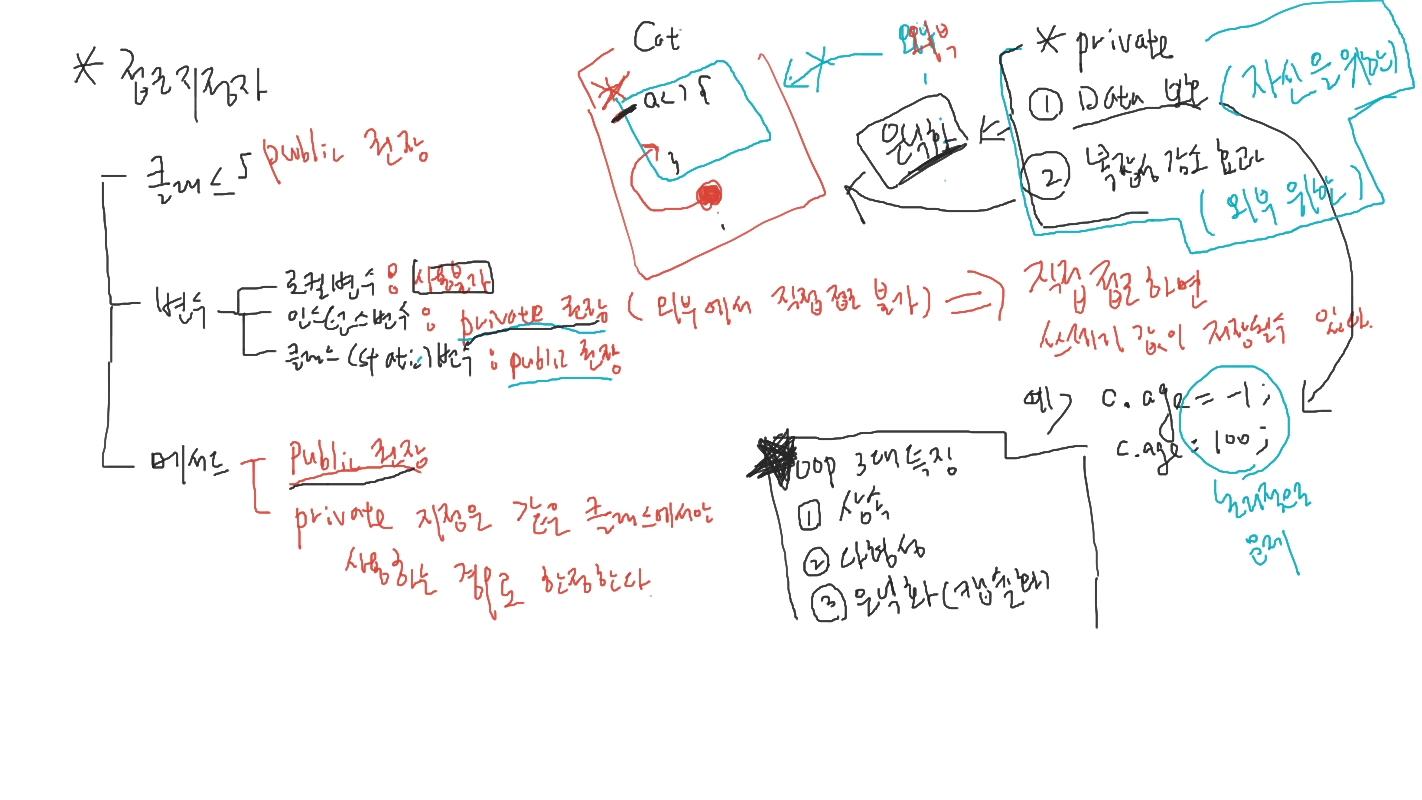 * 접근지정자
클래스
public 권장
변수
로컬변수 : 사용불가
인스턴스변수 : private 권장 (외부에서 직접접근 불가) =>
직접 접근하면
쓰레기 값이 저장될수 있다.
클래스(static)변수 : public 권장
메서드
public 권장
private 지정은 같은 클래스에서만
사용하는 경우로 한정한다
Cat
a() {
}
외부
은닉화
* private
① Data 보호
(자신을 위한)
② 복잡성 감소 효과
(외부 위한)
예) c.age = -1;
c.age = 100;
논리적인
문제
OOP 3대 특징
① 상속
② 다형성
③ 은닉화(캡슐화)